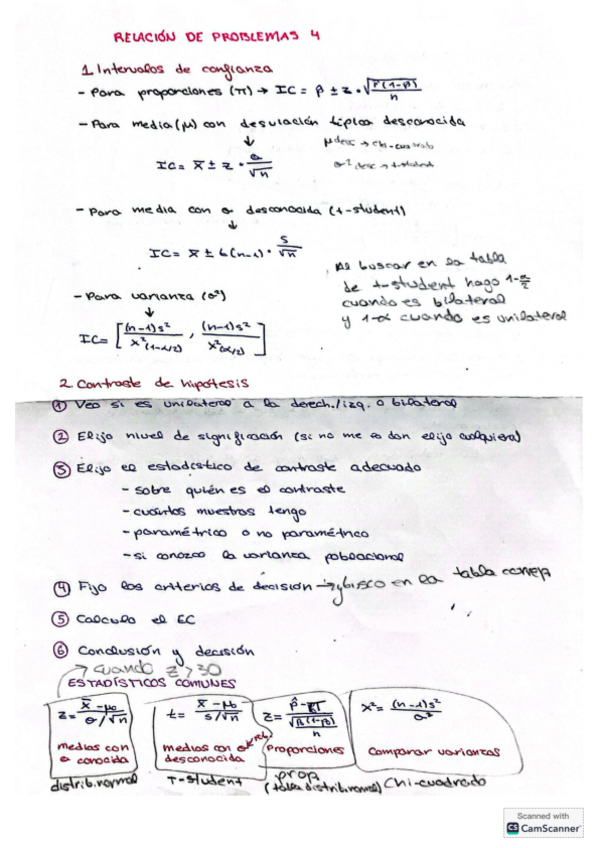 RELACIÓN DE PROBLEMAS 4
1. Intervalos de confianza
- Para proporciones (π) → IC = p̂ ± z · √(p̂(1-p̂)/n)
- Para media (μ) con desviación típica desconocida
μ desc → chi-cuadrado
σ² desc → t-student
↓
IC = x̄ ± z · σ/√n
- Para media con σ desconocida (t-student)
↓
IC = x̄ ± t(n-1) · s/√n
Al buscar en la tabla
de t-student hago 1-α/2
cuando es bilateral
y 1-α cuando es unilateral
- Para varianza (σ²)
↓
IC = [(n-1)s²/x²(1-α/2), (n-1)s²/x²(α/2)]
2. Contraste de hipótesis
① Veo si es unilateral a la derech./izq. o bilateral
② Elijo nivel de significación (si no me lo dan elijo cualquiera)
③ Elijo el estadístico de contraste adecuado
- sobre quién es el contraste
- cuántas muestras tengo
- paramétrico o no paramétrico
- si conozco la varianza poblacional
④ Fijo los criterios de decisión → y busco en la tabla
⑤ Calculo el EC
⑥ Conclusión y decisión
→ cuando z > 30
ESTADÍSTICOS COMUNES
z = (x̄ - μ₀)/(σ/√n)
medias con
σ conocida
distrib. normal
t = (x̄ - μ₀)/(s/√n)
medias con σ
desconocida
T-student
z = (p̂ - π)/√(p̂(1-p̂)/n)
Proporciones
prop
(tabla distrib. normal)
x² = (n-1)s²/σ²
Comparar varianzas
Chi-cuadrado
Scanned with
CS CamScanner